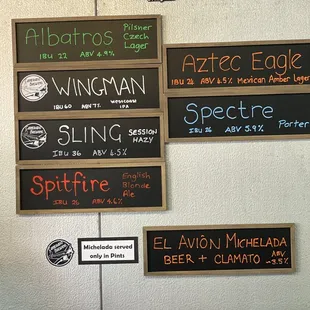 Albatros
Pilsner
Czech
Lager
IBU 22 ABV 4.9%
WINGMAN
IBU 60 ABV 7% WESTCOAST
IPA
SLING SESSION
HAZY
IBU 36 ABV 4.5%
Spitfire English
Blonde
Ale
IBU 26 ABV 4.6%
Aztec Eagle
IBU 26 ABV 4.5% Mexican Amber Lager
Spectre
IBU 26 ABV 5.9% Porter
Michelada served
only in Pints
EL AVIÓN MICHELADA
BEER + CLAMATO ABV
~3.5%